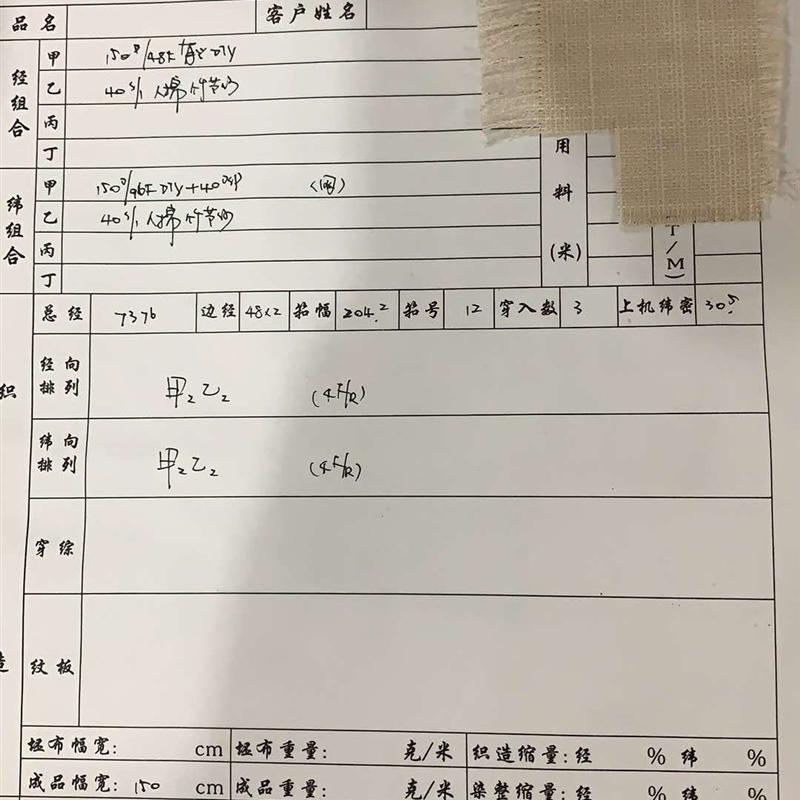 品名 客户姓名
经组合
甲 150D/48F 有光 DTY
乙 40S/1 人棉竹节纱
丙
丁
纬组合
甲 150D/96F DTY+40DSP (网)
乙 40S/1 人棉竹节纱
丙
丁
用料(米)
T/M)
总经 7376 边经 48x2 筘幅 204.2 筘号 12 穿入数 3 上机纬密 30.5
织
经向排列 甲2乙2 (4F/R)
纬向排列 甲2乙2 (4F/R)
穿综
造
纹板
坯布幅宽: cm 坯布重量: 克/米 织造缩量:经 % 纬 %
成品幅宽: 150 cm 成品重量: 克/米 染整缩量:经 % 纬 %